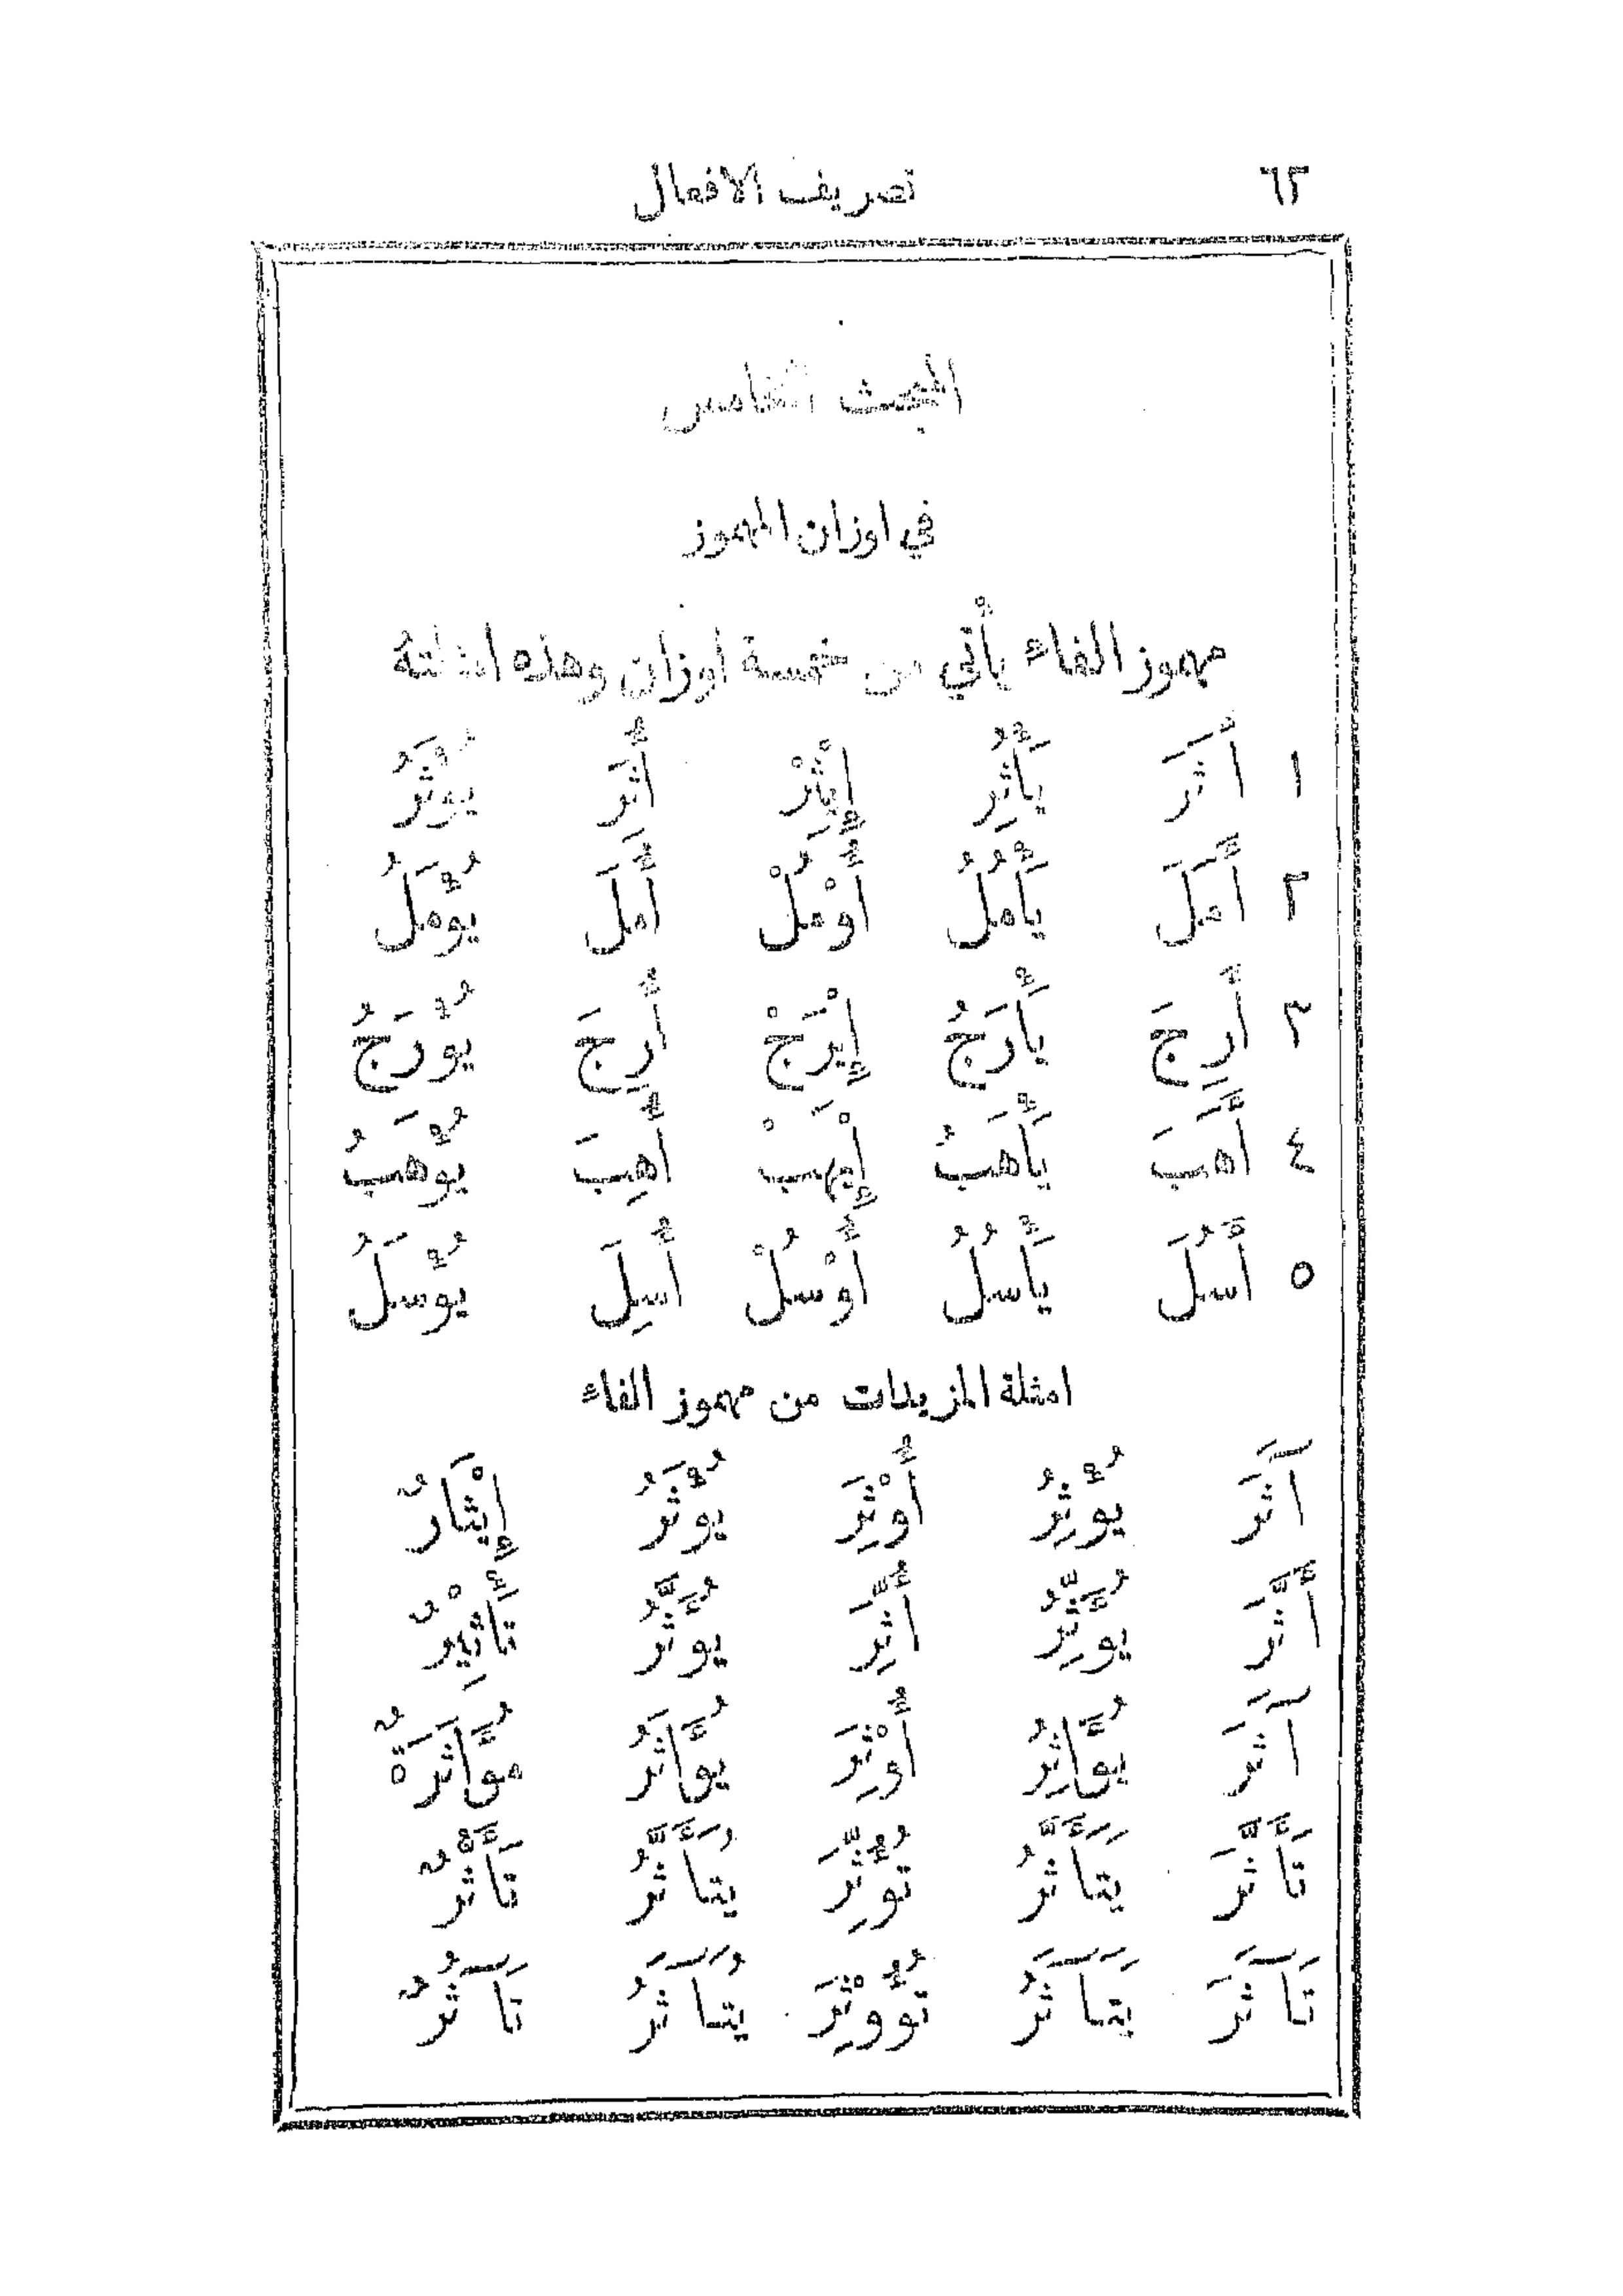 ٦٢ تصريف الافعال
المبحث الخامس
في اوزان المهموز
مهموز الفاء يأتي من خمسة اوزان وهذه امثلتهُ
١ أَثَرَ يَأْثُِرُ إِيْثِرْ أُثِرَ يُؤْثَرُ
٢ أَمَلَ يَأْمُلُ أُوْمُلْ أُمِلَ يُؤْمَلُ
٣ أَرِجَ يَأْرَجُ إِيْرَجْ أُرِجَ يُؤْرَجُ
٤ أَهَبَ يَأْهَبُ إِيْهَبْ أُهِبَ يُؤْهَبُ
٥ أَسُلَ يَأْسُلُ أُوْسُلْ أُسِلَ يُؤْسَلُ
امثلة المزيدات من مهموز الفاء
آثَرَ يُؤْثِرُ أُوْثِرَ يُؤْثَرُ إِيْثَارٌ
أَثَّرَ يُؤَثِّرُ أُثِّرَ يُؤَثَّرُ تَأْثِيْرٌ
آثَرَ يُؤَاثِرُ أُوْثِرَ يُؤَاثَرُ مُؤَاثَرَةٌ
تَأَثَّرَ يَتَأَثَّرُ تُؤُثِّرَ يُتَأَثَّرُ تَأَثُّرٌ
تَآثَرَ يَتَآثَرُ تُؤُوْثِرَ يُتَآثَرُ تَآثُرٌ